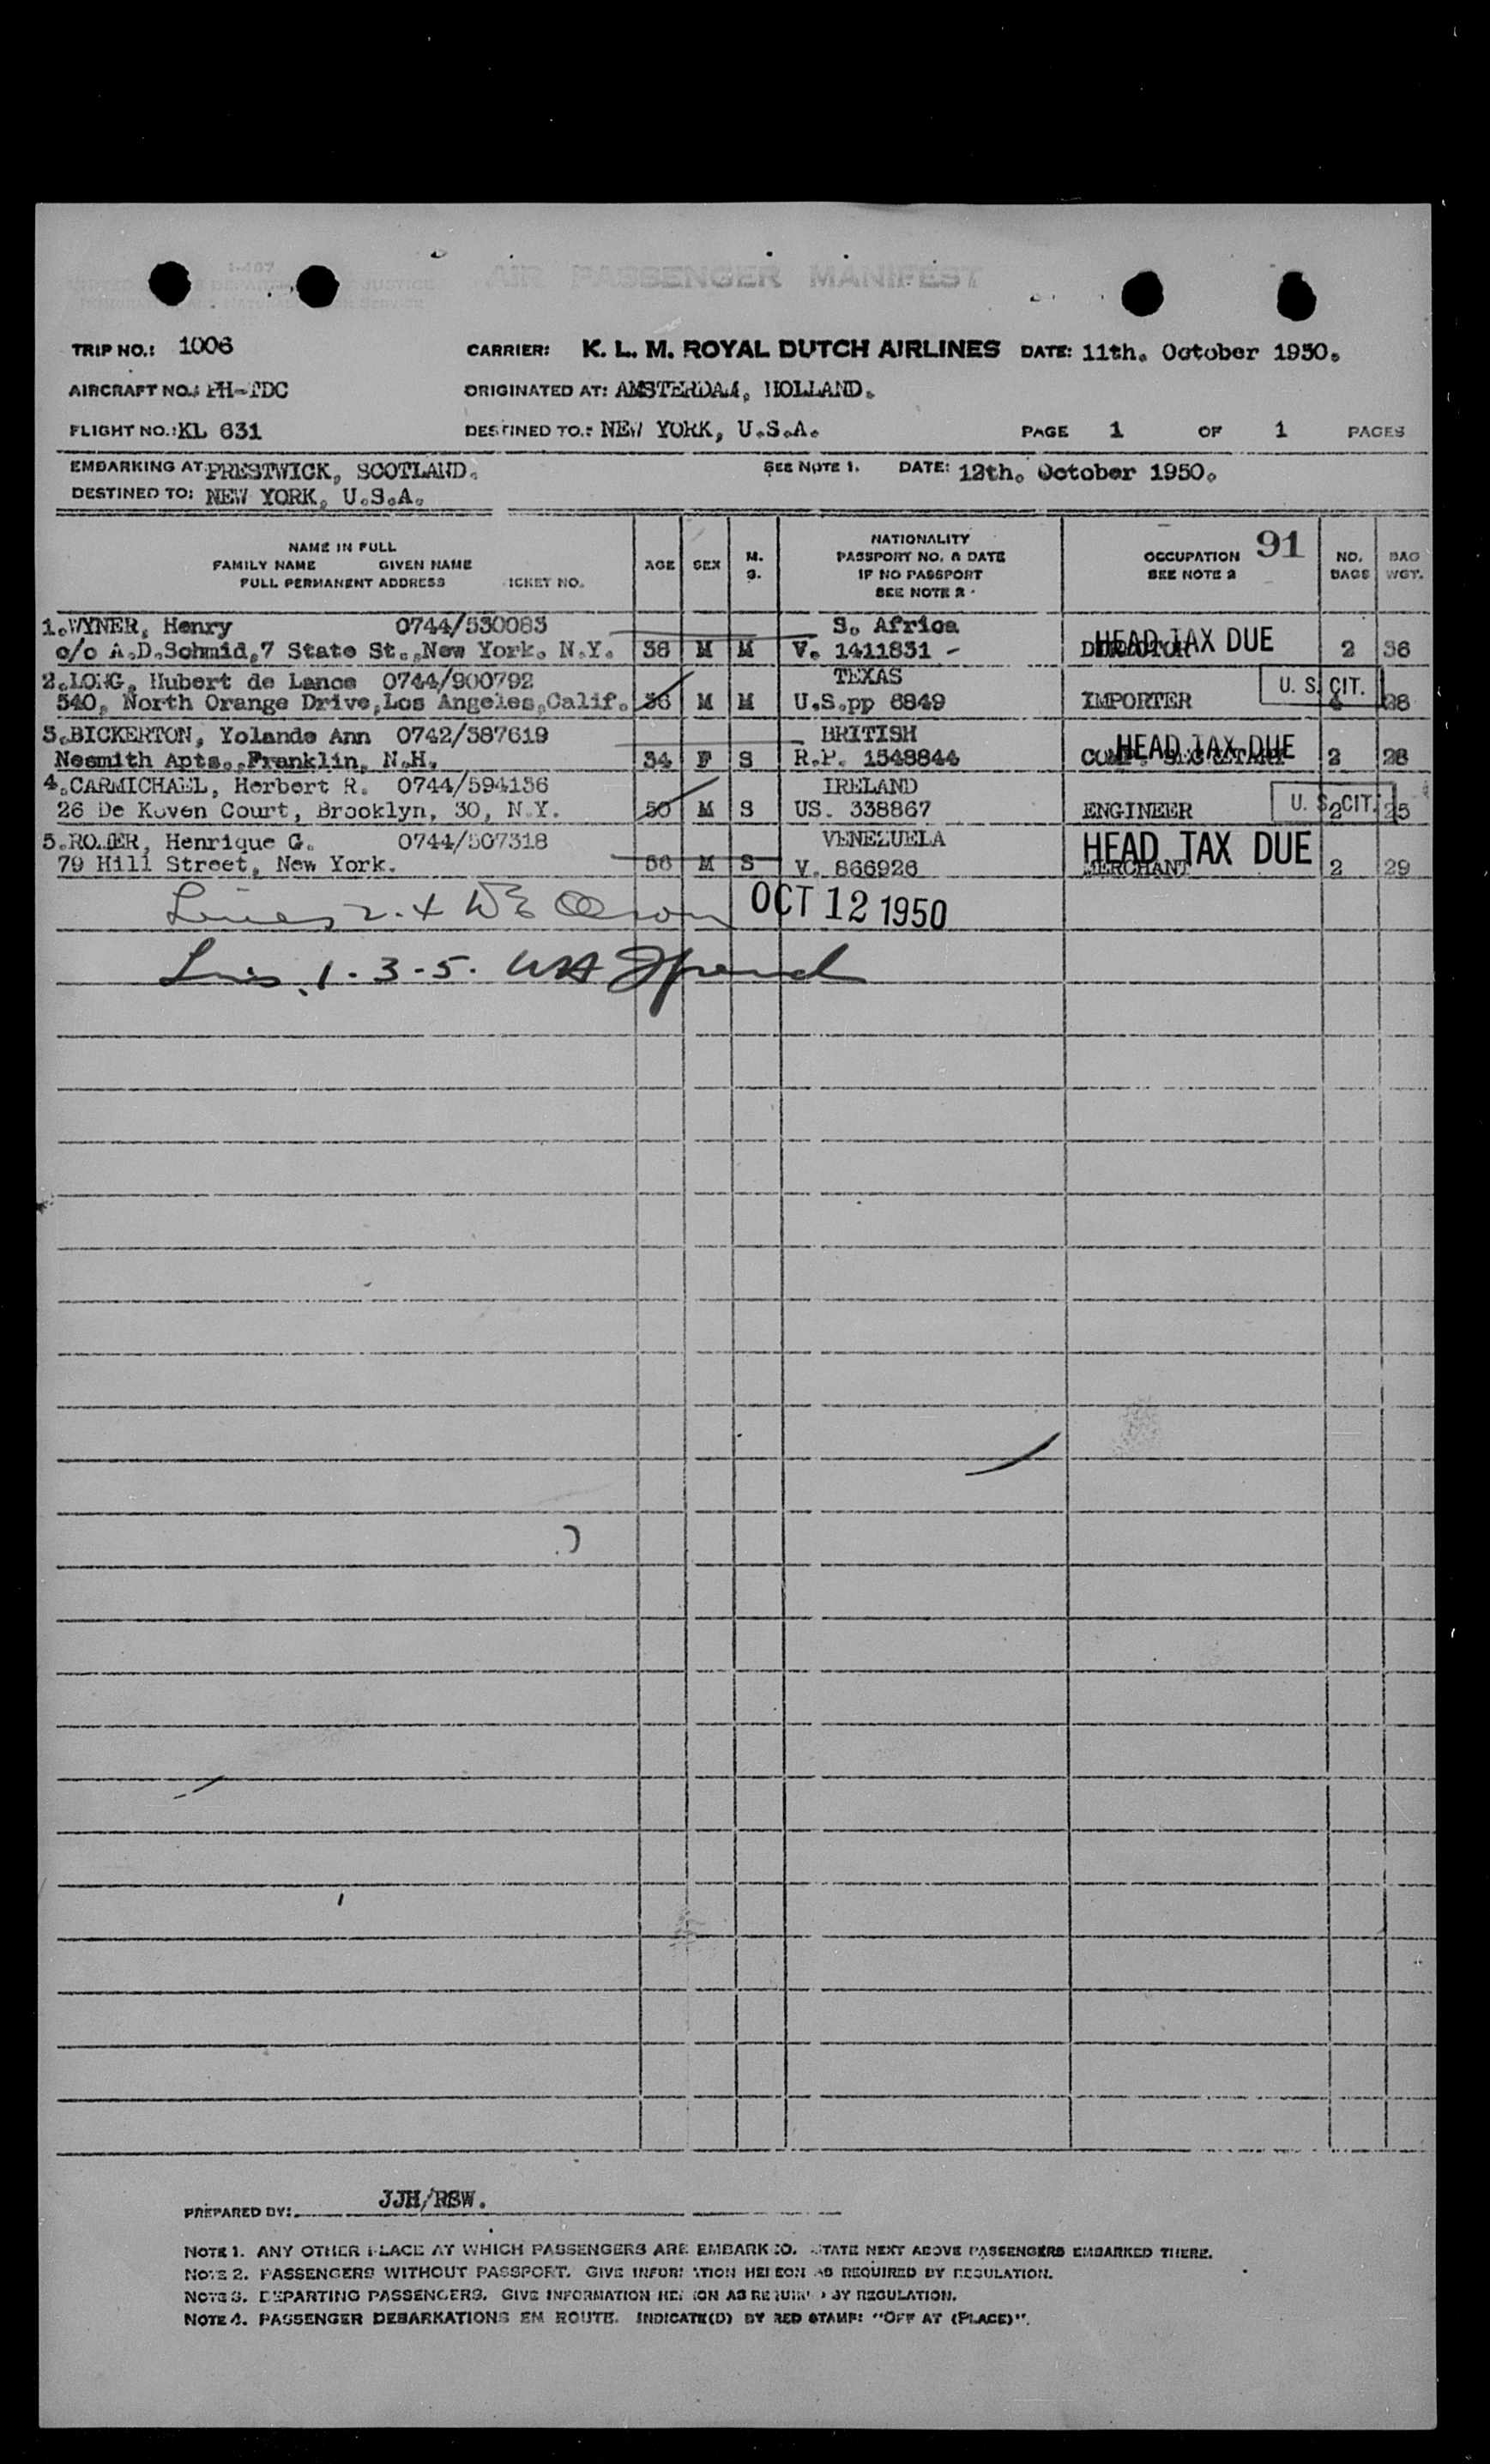 AIR PASSENGER MANIFEST
TRIP NO.: 1006 CARRIER: K. L. M. ROYAL DUTCH AIRLINES DATE: 11th. October 1950.
AIRCRAFT NO.: PH-TDC ORIGINATED AT: AMSTERDAM, HOLLAND.
FLIGHT NO.: KL 631 DESTINED TO.: NEW YORK, U.S.A. PAGE 1 OF 1 PAGES
EMBARKING AT PRESTWICK, SCOTLAND. SEE NOTE 1. DATE: 12th. October 1950.
DESTINED TO: NEW YORK, U.S.A.
NAME IN FULL
FAMILY NAME GIVEN NAME
FULL PERMANENT ADDRESS TICKET NO.
AGE SEX M. S.
NATIONALITY
PASSPORT NO. & DATE
IF NO PASSPORT
SEE NOTE 2
OCCUPATION 91
SEE NOTE 2
NO. BAGS
BAG WGT.
1. WYNER, Henry 0744/530083 S. Africa
c/o A.D.Schmid,7 State St.,New York. N.Y. 36 M M V. 1411831 - HEAD TAX DUE 2 36
2.LONG, Hubert de Lance 0744/900792 TEXAS U. S. CIT.
540, North Orange Drive,Los Angeles,Calif. M M U.S.pp 6849 IMPORTER
3.BICKERTON, Yolande Ann 0742/587619 BRITISH HEAD TAX DUE
Nesmith Apts., Franklin, N.H. 34 F S R.P. 1548844 SECRETARY 2 28
4.CARMICHAEL, Herbert R. 0744/594136 IRELAND U. S. CIT.
26 De Koven Court, Brooklyn, 30, N.Y. 50 M S US. 338867 ENGINEER 2 25
5. Henrique G. 0744/507318 VENEZUELA HEAD TAX DUE
79 Hill Street, New York. 56 M S V. 866926 MERCHANT 2 29
Lines 2. 4 OCT 12 1950
Lines 1-3-5.
PREPARED BY: JJH/RSW.
NOTE 1. ANY OTHER PLACE AT WHICH PASSENGERS ARE EMBARKED. STATE NEXT ABOVE PASSENGERS EMBARKED THERE.
NOTE 2. PASSENGERS WITHOUT PASSPORT. GIVE INFORMATION HEREON AS REQUIRED BY REGULATION.
NOTE 3. DEPARTING PASSENGERS. GIVE INFORMATION HEREON AS REQUIRED BY REGULATION.
NOTE 4. PASSENGER DEBARKATIONS EN ROUTE. INDICATE(D) BY RED STAMP: "OFF AT (PLACE)".